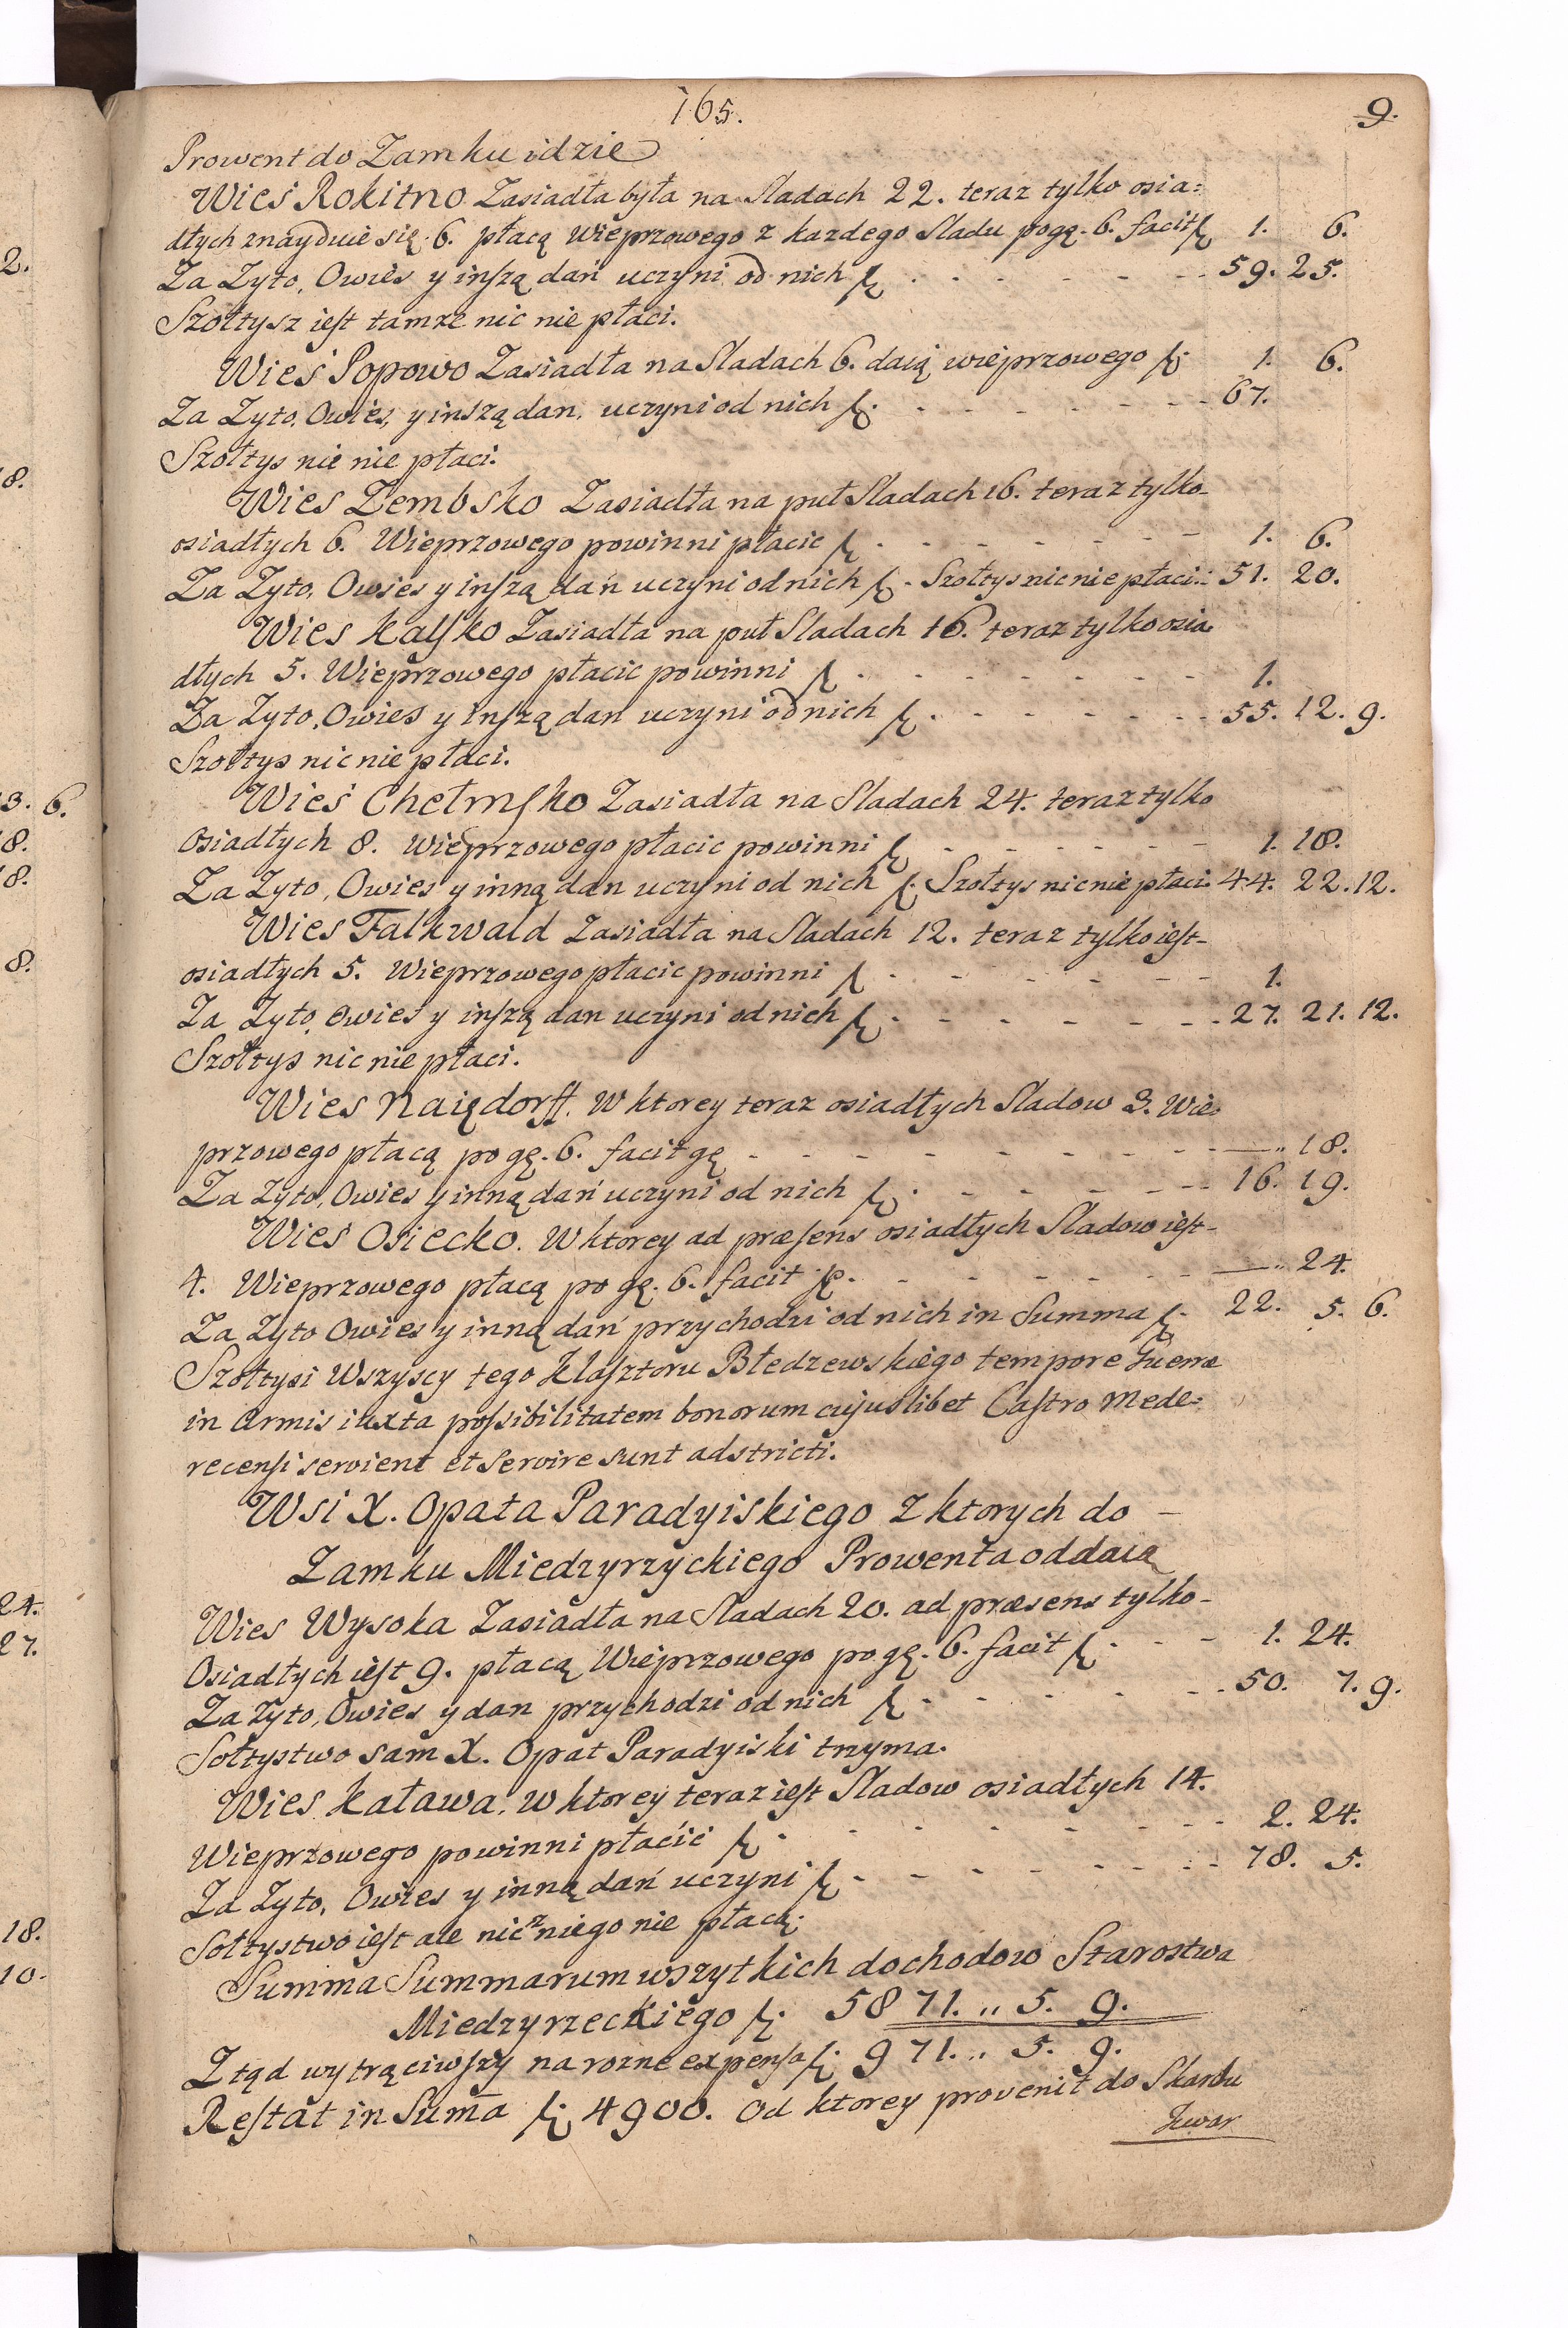 165.
9.
Prowent do Zamku idzie
Wies Rokitno Zasiadła była na Sladach 22. teraz tylko osia=
dłych znayduie się 6. płacą Wieprzowego z kazdego Sladu pogę. 6. facit f 1. 6.
Za Zyto, Owies y inſzą dań uczyni od nich f 59. 25.
Szołtysz ieſt tamze nic nie płaci.
Wieś Popowo Zasiadła na Sladach 6. daią wieprzowego f 1. 6.
Za Zyto, Owies, y inszą dan, uczyni od nich f. 67.
Szołtys nic nie płaci.
Wies Zembsko Zasiadła na puł Sladach 16. teraz tylko
osiadłych 6. Wieprzowego powinni płacic f 1. 6.
Za Zyto, Owies y inſzą dań uczyni od nich f. Szołtys nic nie płaci. 51. 20.
Wies Kalſko Zasiadła na puł Sladach 16. teraz tylko osia
dłych 5. Wieprzowego płacic powinni f 1.
Za Zyto, Owies y inſzą dan uczyni od nich f 55. 12. 9.
Szołtys nic nie płaci.
Wieś Chełmſko Zasiadła na Sladach 24. teraz tylko
osiadłych 8. Wieprzowego płacic powinni f 1. 18.
Za Zyto, Owies y inną dan uczyni od nich f. Szołtys nic nie płaci. 44. 22. 12.
Wies Falkwald Zasiadła na Sladach 12. teraz tylko ieſt
osiadłych 5. Wieprzowego płacic powinni f 1.
Za Zyto, owies y inſzą dan uczyni od nich f 27. 21. 12.
Szołtys nic nie płaci.
Wies Naiędorff. W ktorey teraz osiadłych Sladow 3. Wie
przowego płacą po gę. 6. facit gę — 18.
Za Zyto, Owies y inną dań uczyni od nich f 16. 19.
Wies Osiecko. W ktorey ad præſens osiadłych Sladow ieſt
4. Wieprzowego płacą po gę. 6. facit gę. — 24.
Za Zyto Owies y inną dań przychodzi od nich in Summa f. 22. 5. 6.
Szołtysi Wszyscy tego Klaſztoru Bledzewskiego tempore Guerræ
in Armis iuxta poſsibilitatem bonorum cujuslibet Caſtro Mede=
recenſi servient et servire sunt adstricti.
Wsi X. Opata Paradyiskiego z ktorych do
Zamku Miedzyrzyckiego Prowenta oddaią
Wies Wysoka Zasiadła na Sladach 20. ad præsens tylko
Osiadłych ieſt 9. płacą Wieprzowego po gę. 6. facit f. 1. 24.
Za Zyto, Owies y dan przychodzi od nich f 50. 7. 9.
Sołtystwo sam X. Opat Paradyiski trzyma.
Wies Kaława. W ktorey teraz ieſt Sladow osiadłych 14.
Wieprzowego powinni płacić f 2. 24.
Za Zyto, Owies y inną dań uczyni f 78. 5.
Sołtystwo ieſt ale nic z niego nie płacą.
Summa Summarum wszytkich dochodow Starostwa
Miedzyrzeckiego f. 5871. „ 5. 9.
Ztąd wytrąciwſzy na rozne expenſa f. 971. „ 5. 9.
Reſtat in Sum̄a f. 4900. Od ktorey provenit do Skarbu
Kwar
2.
8.
13. 6.
18.
18.
8.
24.
27.
18.
10.